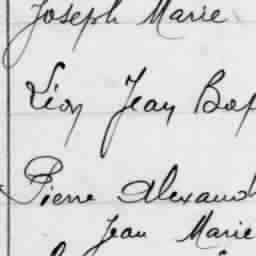 Joseph Marie
Léon Jean Bap
Pierre Alexand
Jean Marie